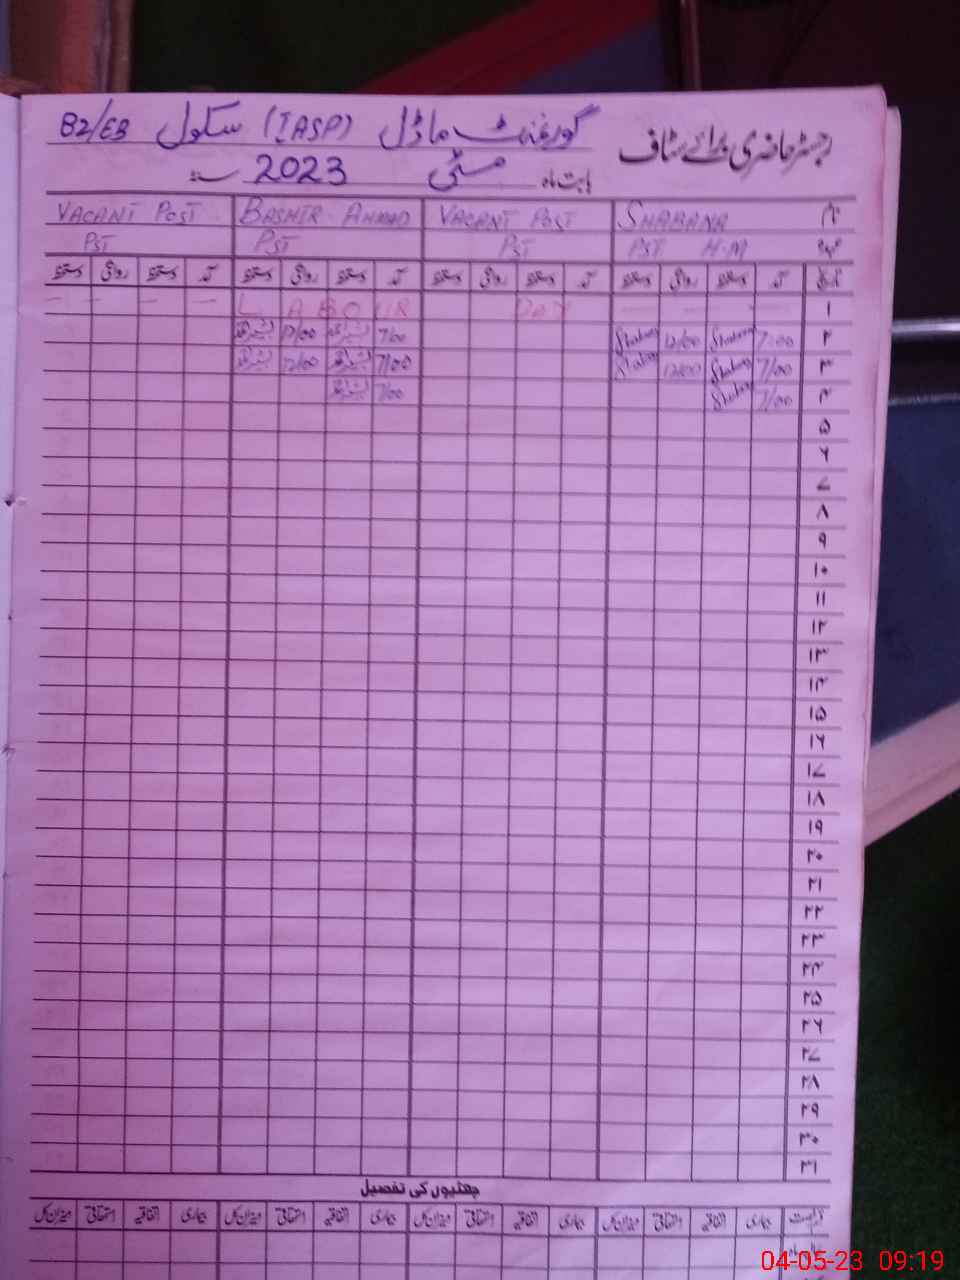 رجسٹر حاضری برائے سٹاف
گورنمنٹ ماڈل (IASP) سکول 82/EB
بابت ماہ مئی 2023 سنہ
نام SHABANA VACANT POST BASHIR AHMAD VACANT POST
عہدہ PST H-M PST PST PST
تاریخ آمد دستخط روانگی دستخط آمد دستخط روانگی دستخط آمد دستخط روانگی دستخط آمد دستخط روانگی دستخط
۱ LABOUR DAY
۲ 7:00 Shabana 12/00 Shabana 7/00 بشیر احمد 12/00 بشیر احمد
۳ 7/00 Shabana 12/00 Shabana 7/00 بشیر احمد 12/00 بشیر احمد
۴ 7/00 Shabana 7/00 بشیر احمد
۵
۶
۷
۸
۹
۱۰
۱۱
۱۲
۱۳
۱۴
۱۵
۱۶
۱۷
۱۸
۱۹
۲۰
۲۱
۲۲
۲۳
۲۴
۲۵
۲۶
۲۷
۲۸
۲۹
۳۰
۳۱
چھٹیوں کی تفصیل
بیماری اتفاقیہ استحقاقی میزان کل بیماری اتفاقیہ استحقاقی میزان کل بیماری اتفاقیہ استحقاقی میزان کل بیماری اتفاقیہ استحقاقی میزان کل
04-05-23 09:19